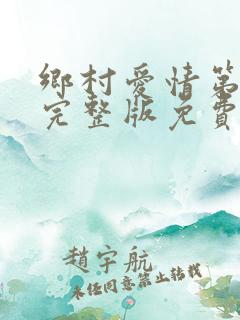 鄉村愛情第
完整版免費
趙宇航
未任同意禁止转载